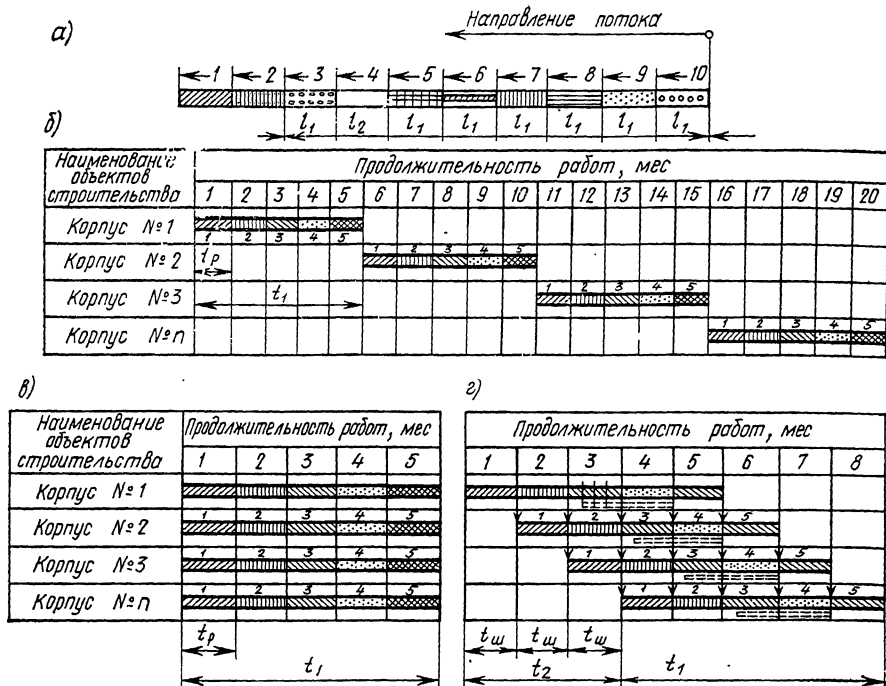 Направление потока
а)
1 2 3 4 5 6 7 8 9 10
l₁ l₂ l₁ l₁ l₁ l₁ l₁ l₁
б)
Наименование объектов строительства
Продолжительность работ, мес
1 2 3 4 5 6 7 8 9 10 11 12 13 14 15 16 17 18 19 20
Корпус №1
1 2 3 4 5
tр
Корпус №2
1 2 3 4 5
Корпус №3
1 2 3 4 5
t₁
Корпус №n
1 2 3 4 5
в)
Наименование объектов строительства
Продолжительность работ, мес
1 2 3 4 5
Корпус №1
Корпус №2
1 2 3 4 5
Корпус №3
1 2 3 4 5
Корпус №n
1 2 3 4 5
tр
t₁
г)
Продолжительность работ, мес
1 2 3 4 5 6 7 8
1 2 3 4 5
1 2 3 4 5
1 2 3 4 5
tш tш tш
t₂ t₁